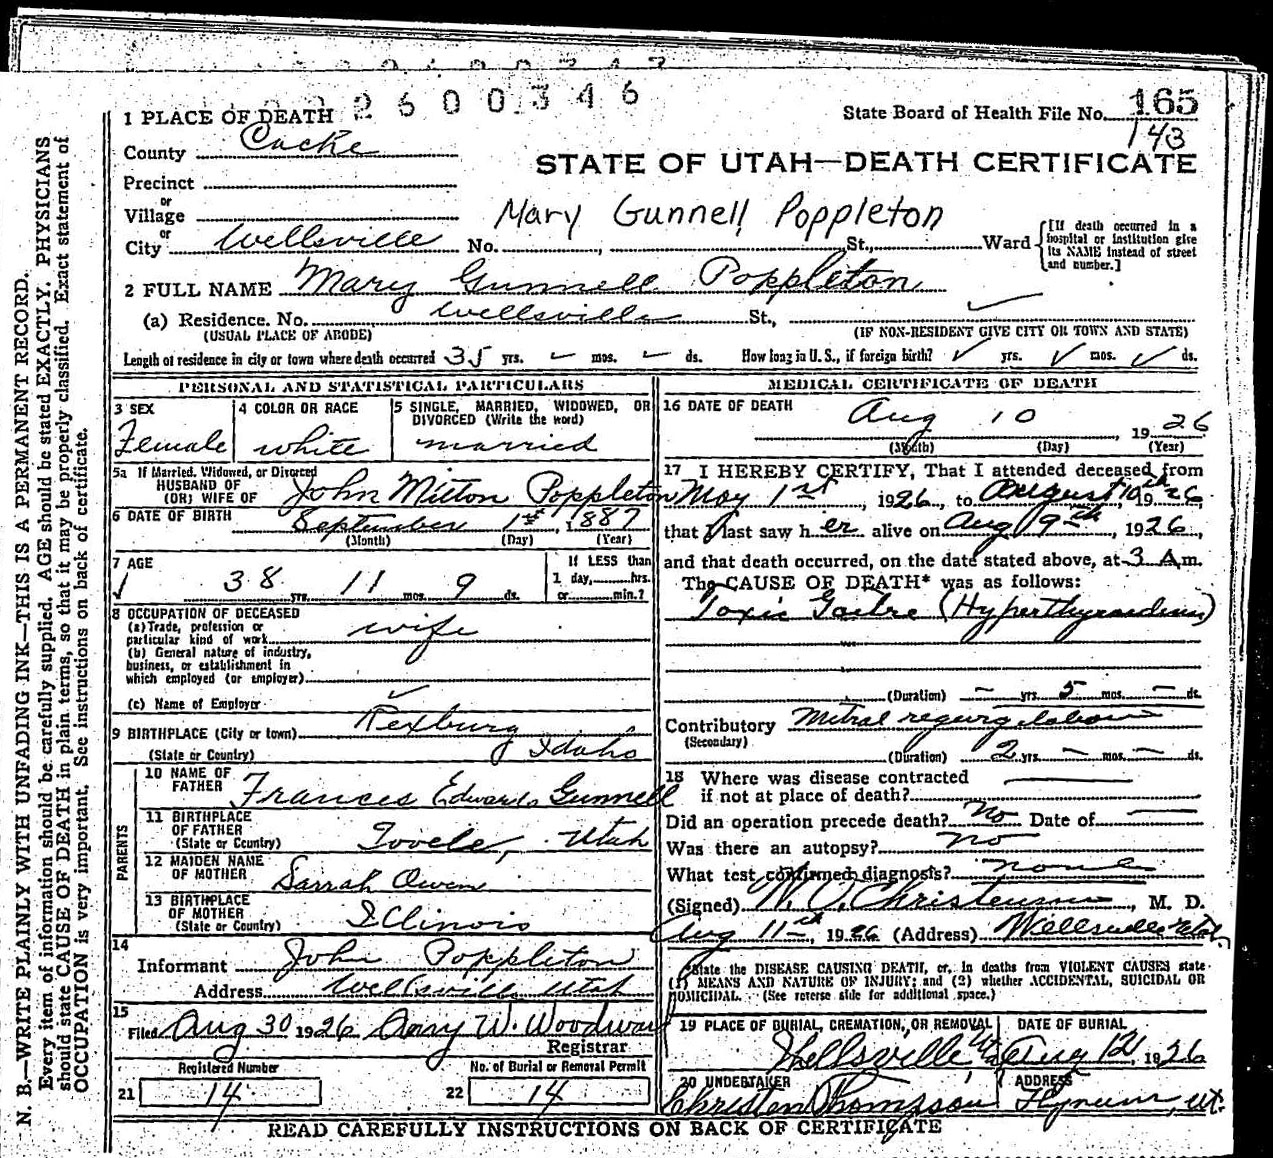 2600346
State Board of Health File No. 165
143
1 PLACE OF DEATH
County Cache
STATE OF UTAH—DEATH CERTIFICATE
Precinct
or
Village
Mary Gunnell Poppleton
or
City Wellsville No. St., Ward
[If death occurred in a hospital or institution give its NAME instead of street and number.]
2 FULL NAME Mary Gunnell Poppleton
(a) Residence. No. Wellsville St.,
(USUAL PLACE OF ABODE) (IF NON-RESIDENT GIVE CITY OR TOWN AND STATE)
Length of residence in city or town where death occurred 35 yrs. – mos. – ds. How long in U. S., if foreign birth? ✓ yrs. ✓ mos. ✓ ds.
PERSONAL AND STATISTICAL PARTICULARS
3 SEX
Female
4 COLOR OR RACE
white
5 SINGLE, MARRIED, WIDOWED, OR
DIVORCED (Write the word)
married
5a If Married, Widowed, or Divorced
HUSBAND OF
(OR) WIFE OF John Milton Poppleton
6 DATE OF BIRTH September 1st, 1887
(Month) (Day) (Year)
7 AGE
38 yrs. 11 mos. 9 ds.
If LESS than
1 day, hrs.
or min.?
8 OCCUPATION OF DECEASED
(a) Trade, profession or
particular kind of work wife
(b) General nature of industry,
business, or establishment in
which employed (or employer)
(c) Name of Employer
9 BIRTHPLACE (City or town) Rexburg
(State or Country) Idaho
PARENTS
10 NAME OF
FATHER Frances Edward Gunnell
11 BIRTHPLACE
OF FATHER
(State or Country) Tooele, Utah
12 MAIDEN NAME
OF MOTHER Sarrah Owen
13 BIRTHPLACE
OF MOTHER
(State or Country) Illinois
14
Informant John Poppleton
Address Wellsville Utah
15
Filed Aug 30 1926 Amy W. Woodward
Registrar
Registered Number
21 14
No. of Burial or Removal Permit
22 14
MEDICAL CERTIFICATE OF DEATH
16 DATE OF DEATH
Aug 10, 1926
(Month) (Day) (Year)
17 I HEREBY CERTIFY, That I attended deceased from
May 1st, 1926, to August 10th 1926,
that I last saw her alive on Aug 9th, 1926,
and that death occurred, on the date stated above, at 3 A.m.
The CAUSE OF DEATH* was as follows:
Toxic Goitre (Hyperthyroidism)
(Duration) – yrs. 5 mos. – ds.
Contributory Mitral regurgitation
(Secondary)
(Duration) 2 yrs. – mos. – ds.
18 Where was disease contracted
if not at place of death?
Did an operation precede death? no Date of
Was there an autopsy? no
What test confirmed diagnosis? none
(Signed) W. O. Christensen, M. D.
Aug 11st, 1926 (Address) Wellsville Utah
*State the DISEASE CAUSING DEATH, or, in deaths from VIOLENT CAUSES state
(1) MEANS AND NATURE OF INJURY; and (2) whether ACCIDENTAL, SUICIDAL OR
HOMICIDAL. (See reverse side for additional space.)
19 PLACE OF BURIAL, CREMATION, OR REMOVAL
Wellsville
DATE OF BURIAL
Aug 12, 1926
20 UNDERTAKER
Christen Thompson
ADDRESS
Hyrum, Ut.
READ CAREFULLY INSTRUCTIONS ON BACK OF CERTIFICATE
N. B.—WRITE PLAINLY WITH UNFADING INK—THIS IS A PERMANENT RECORD.
Every item of information should be carefully supplied. AGE should be stated EXACTLY. PHYSICIANS
should state CAUSE OF DEATH in plain terms, so that it may be properly classified. Exact statement of
OCCUPATION is very important. See instructions on back of certificate.